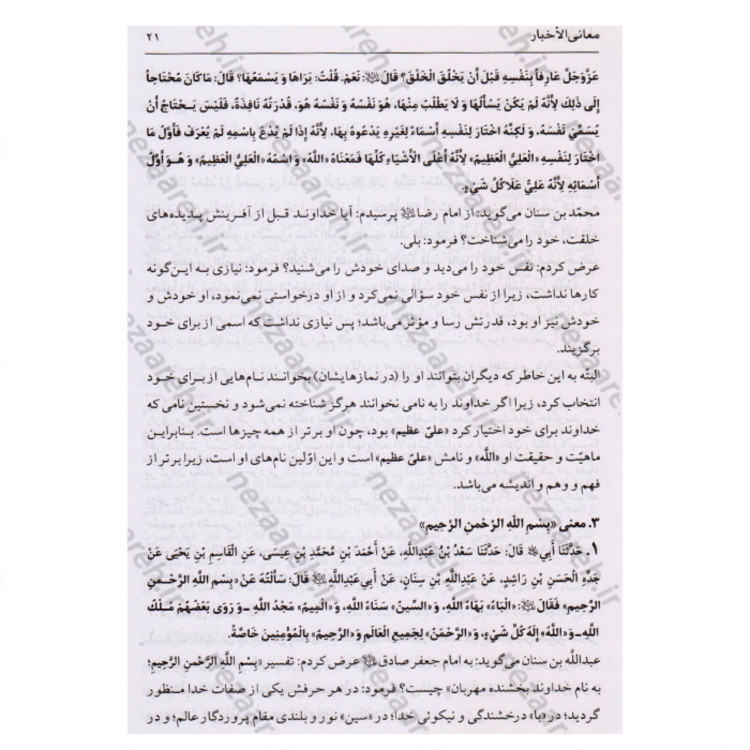 معانی‌الأخبار ۲۱
عَزَّوَجَلَّ عَارِفاً بِنَفْسِهِ قَبْلَ أَنْ يَخْلُقَ الْخَلْقَ؟ قَالَ: نَعَمْ. قُلْتُ: يَرَاهَا وَ يَسْمَعُهَا؟ قَالَ: مَا كَانَ مُحْتَاجاً
إِلَى ذَلِكَ لِأَنَّهُ لَمْ يَكُنْ يَسْأَلُهَا وَ لَا يَطْلُبُ مِنْهَا، هُوَ نَفْسُهُ وَ نَفْسُهُ هُوَ، قُدْرَتُهُ نَافِذَةٌ، فَلَيْسَ يَحْتَاجُ أَنْ
يُسَمِّيَ نَفْسَهُ، وَ لَكِنَّهُ اخْتَارَ لِنَفْسِهِ أَسْمَاءً لِغَيْرِهِ يَدْعُوهُ بِهَا، لِأَنَّهُ إِذَا لَمْ يُدْعَ بِاسْمِهِ لَمْ يُعْرَفْ فَأَوَّلُ مَا
اخْتَارَ لِنَفْسِهِ «الْعَلِيُّ الْعَظِيمُ» لِأَنَّهُ أَعْلَى الْأَشْيَاءِ كُلِّهَا فَمَعْنَاهُ «اللَّهُ» وَ اسْمُهُ «الْعَلِيُّ الْعَظِيمُ» وَ هُوَ أَوَّلُ
أَسْمَائِهِ لِأَنَّهُ عَلِيٌّ عَلَا كُلَّ شَيْءٍ.
محمّد بن سنان می‌گوید: از امام رضا پرسیدم: آیا خداوند قبل از آفرینش پدیده‌های
خلقت، خود را می‌شناخت؟ فرمود: بلی.
عرض کردم: نفس خود را می‌دید و صدای خودش را می‌شنید؟ فرمود: نیازی به این‌گونه
کارها نداشت، زیرا از نفس خود سؤالی نمی‌کرد و از او درخواستی نمی‌نمود، او خودش و
خودش نیز او بود، قدرتش رسا و مؤثر می‌باشد؛ پس نیازی نداشت که اسمی از برای خود
برگزیند.
البتّه به این خاطر که دیگران بتوانند او را (در نمازهایشان) بخوانند نام‌هایی از برای خود
انتخاب کرد، زیرا اگر خداوند را به نامی نخوانند هرگز شناخته نمی‌شود و نخستین نامی که
خداوند برای خود اختیار کرد «علیّ عظیم» بود، چون او برتر از همه چیزها است. بنابراین
ماهیّت و حقیقت او «اللّه» و نامش «علیّ عظیم» است و این اوّلین نام‌های او است، زیرا برتر از
فهم و وهم و اندیشه می‌باشد.
۳. معنی «بِسْمِ اللَّهِ الرَّحْمنِ الرَّحِیمِ»
۱. حَدَّثَنَا أَبِي قَالَ: حَدَّثَنَا سَعْدُ بْنُ عَبْدِاللَّهِ، عَنْ أَحْمَدَ بْنِ مُحَمَّدِ بْنِ عِيسَى، عَنِ الْقَاسِمِ بْنِ يَحْيَى عَنْ
جَدِّهِ الْحَسَنِ بْنِ رَاشِدٍ، عَنْ عَبْدِاللَّهِ بْنِ سِنَانٍ، عَنْ أَبِي عَبْدِاللَّهِ قَالَ: سَأَلْتُهُ عَنْ «بِسْمِ اللَّهِ الرَّحْمنِ
الرَّحِيمِ» فَقَالَ: «الْبَاءُ» بَهَاءُ اللَّهِ، وَ «السِّينُ» سَنَاءُ اللَّهِ، وَ «الْمِيمُ» مَجْدُ اللَّهِ ـ وَ رَوَى بَعْضُهُمْ مُلْكُ
اللَّهِ ـ وَ «اللَّهُ» إِلَهُ كُلِّ شَيْءٍ، وَ «الرَّحْمَنُ» لِجَمِيعِ الْعَالَمِ وَ «الرَّحِيمُ» بِالْمُؤْمِنِينَ خَاصَّةً.
عبداللّه بن سنان می‌گوید: به امام جعفر صادق عرض کردم: تفسیر «بِسْمِ اللَّهِ الرَّحْمنِ الرَّحِیمِ؛
به نام خداوند بخشنده مهربان» چیست؟ فرمود: در هر حرفش یکی از صفات خدا منظور
گردید؛ در «با» درخشندگی و نیکوئی خدا؛ در «سین» نور و بلندی مقام پروردگار عالم؛ و در
nezaareh.ir